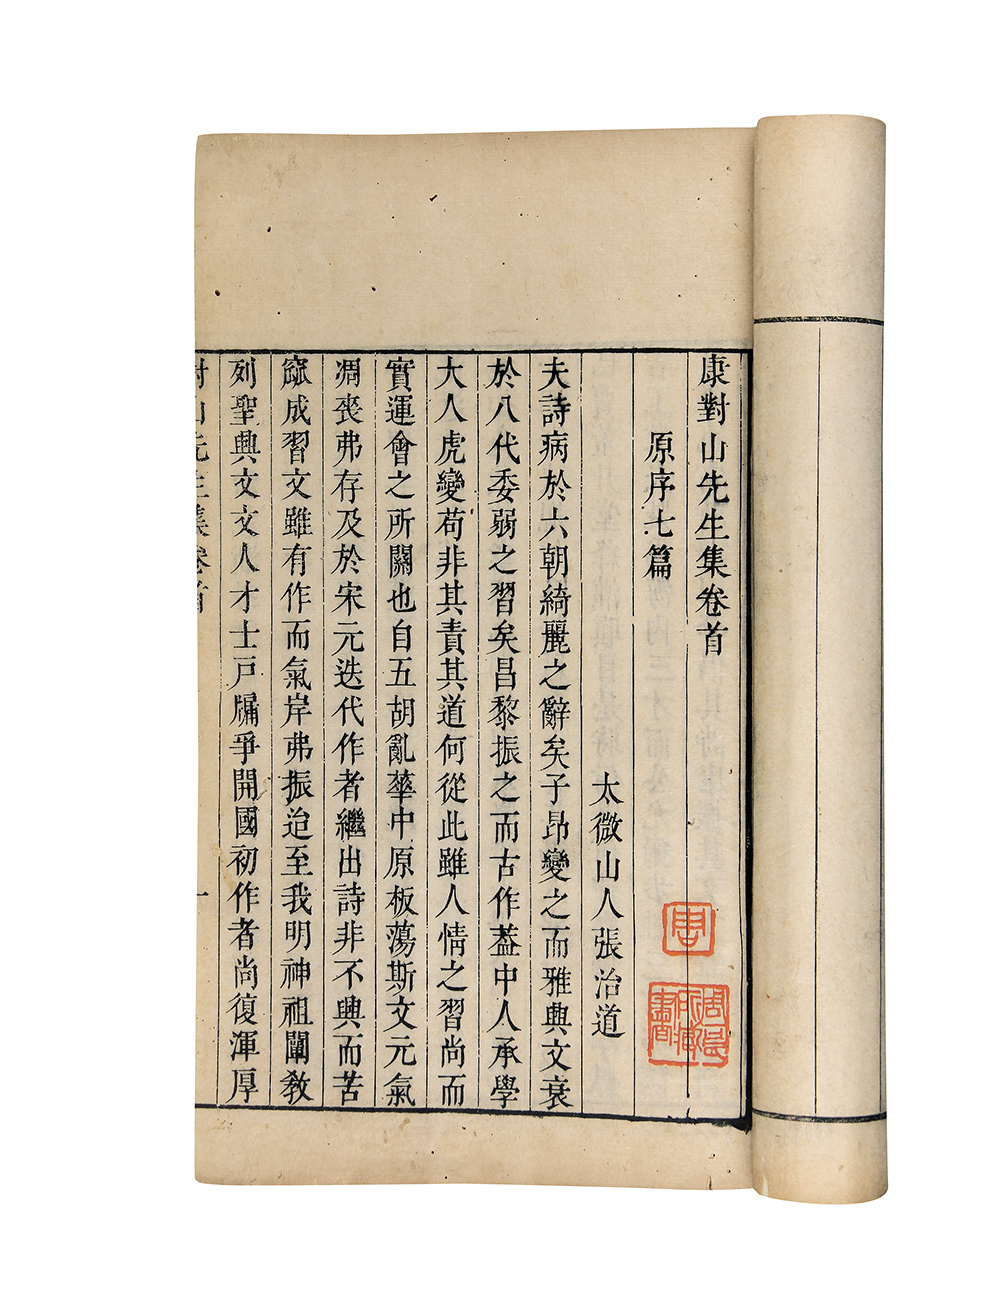 康對山先生集卷首
原序七篇
太微山人張治道
夫詩病於六朝綺麗之辭矣子昂變之而雅典文衰
於八代委弱之習矣昌黎振之而古作葢中人承學
大人虎變苟非其責其道何從此雖人情之習尚而
實運會之所關也自五胡亂華中原板蕩斯文元氣
凋喪弗存及於宋元迭代作者繼出詩非不興而苦
窳成習文雖有作而氣岸弗振迨至我明神祖闡教
列聖興文文人才士戸牖爭開國初作者尚復渾厚
對山先生集卷首
一
周